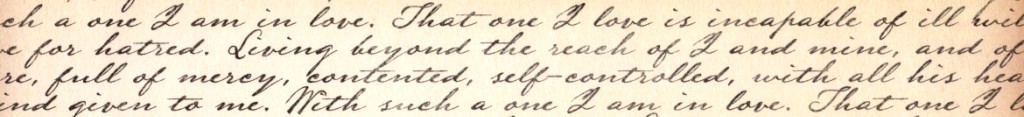 ch a one I am in love. That one I love is incapable of ill wil
e for hatred. Living beyond the reach of I and mine, and of
re, full of mercy, contented, self-controlled, with all his hea
ind given to me. With such a one I am in love. That one I l